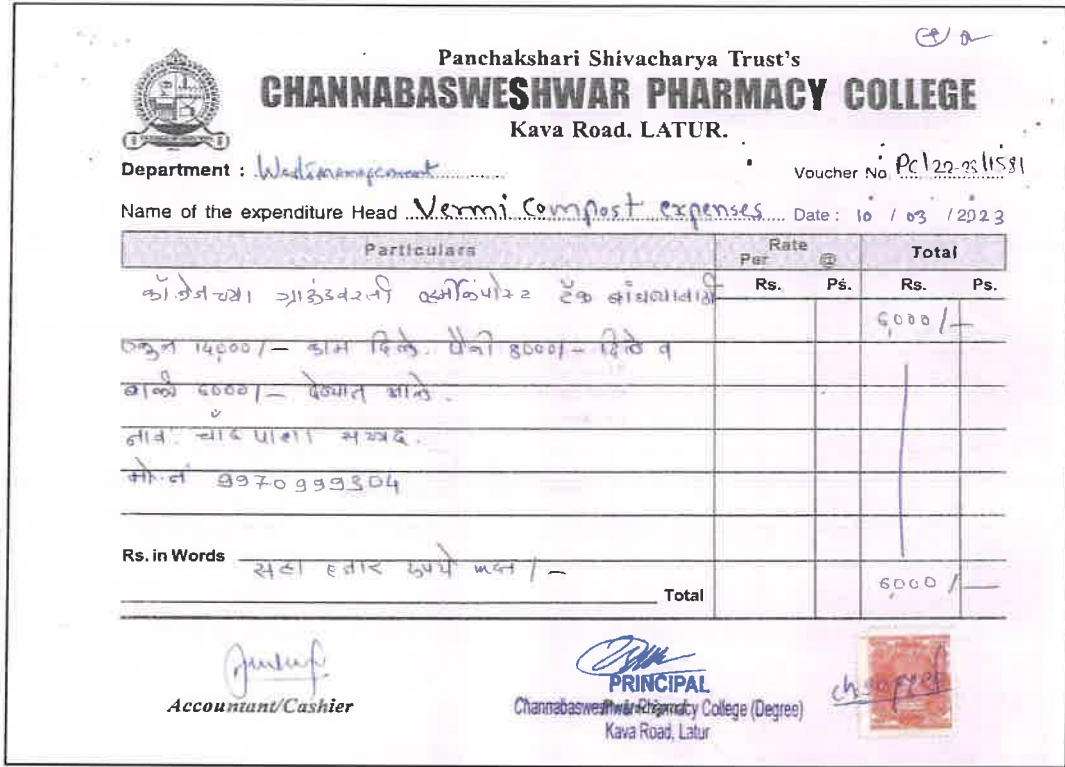 Panchakshari Shivacharya Trust's
CHANNABASWESHWAR PHARMACY COLLEGE
Kava Road. LATUR.
Department : Wastemanagement
Voucher No PC/22-23/1581
Name of the expenditure Head Vermi Compost expenses Date : 10 / 03 / 2023
Particulars Rate Per @ Total
Rs. Ps. Rs. Ps.
कॉलेजच्या ग्राऊंडवरती व्हर्मीकंपोस्ट टँक बांधण्यासाठी
6000/—
एकुन 14000/— काम दिले. पैकी 8000/— दिले व
बाकी 6000/— देण्यात आले.
नाव: चाँद पाशा सय्यद.
मो.नं 9970999304
Rs. in Words सहा हजार रुपये मात्र /—
Total 6000/—
Accountant/Cashier
PRINCIPAL
Channabasweshwar Pharmacy College (Degree)
Kava Road, Latur